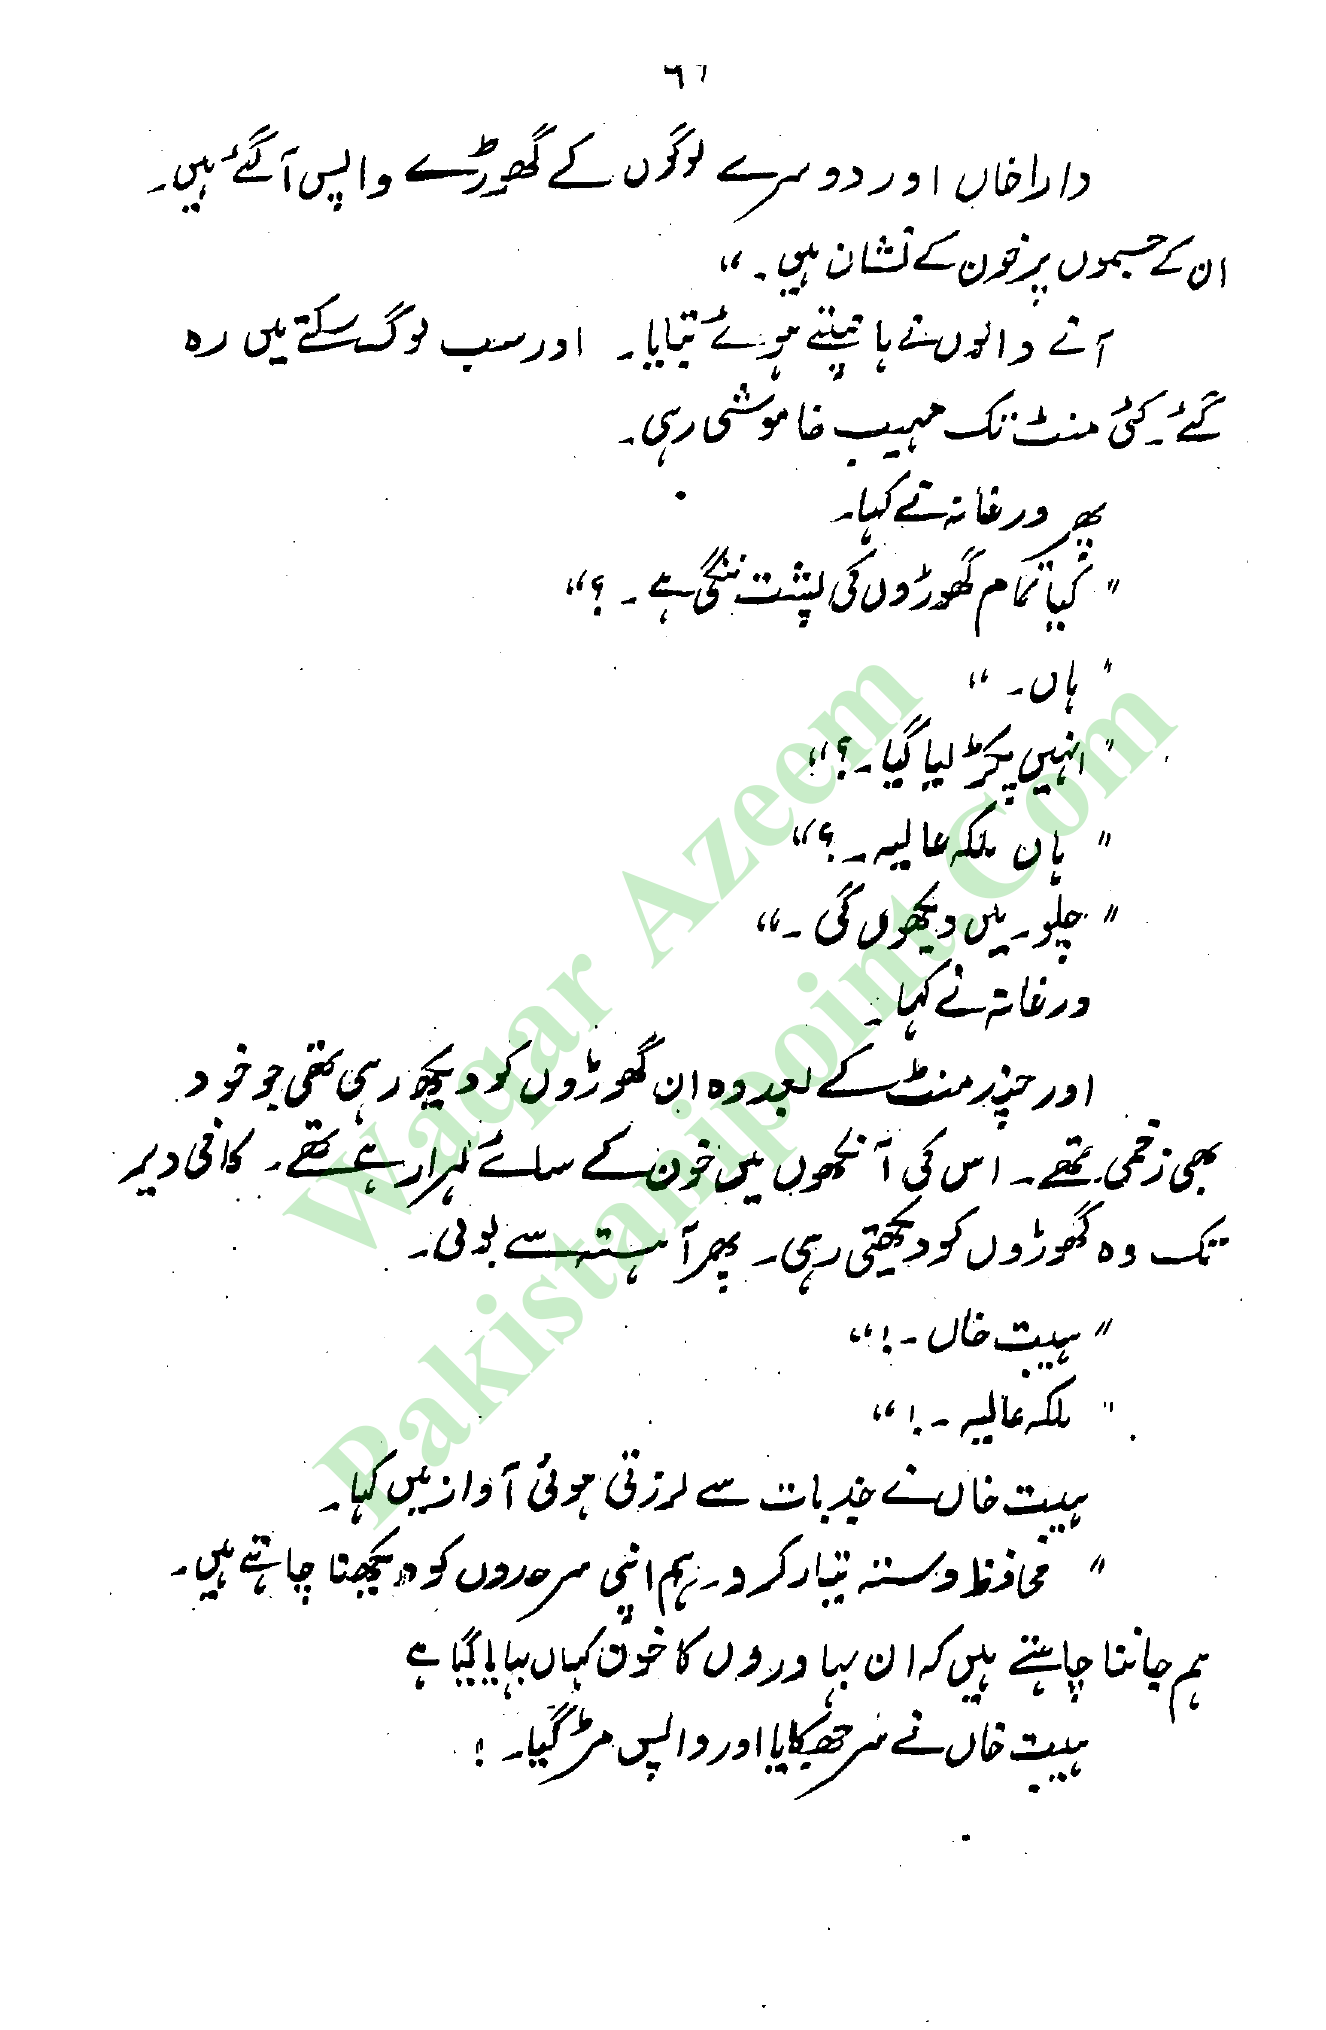 ٦١
داراخاں اور دوسرے لوگوں کے گھوڑے واپس آگئے ہیں۔
ان کے جسموں پر خون کے نشان ہیں۔"
آنے والوں نے ہانپتے ہوئے بتایا۔ اور سب لوگ سکتے میں رہ
گئے۔ کئی منٹ تک مہیب خاموشی رہی۔
پھر ورغانہ نے کہا۔
"کیا تمام گھوڑوں کی پشت ننگی ہے۔؟"
"ہاں۔"
"انہیں پکڑ لیا گیا۔؟"
"ہاں ملکہ عالیہ۔؟"
"چلو۔ میں دیکھوں گی۔"
ورغانہ نے کہا۔
اور چندر منٹ کے بعد وہ ان گھوڑوں کو دیکھ رہی تھی جو خود
بھی زخمی تھے۔ اس کی آنکھوں میں خون کے سائے لہرا رہے تھے۔ کافی دیر
تک وہ گھوڑوں کو دیکھتی رہی۔ پھر آہستہ سے بولی۔
"ہیبت خاں۔!"
"ملکہ عالیہ۔!"
ہیبت خاں نے جذبات سے لرزتی ہوئی آواز میں کہا۔
"محافظ دستہ تیار کرو۔ ہم اپنی سرحدوں کو دیکھنا چاہتے ہیں۔
ہم جاننا چاہتے ہیں کہ ان بہادروں کا خون کہاں بہایا گیا ہے
ہیبت خاں نے سر جھکایا اور واپس مڑ گیا۔!
Waqar Azeem
Pakistanipoint.Com